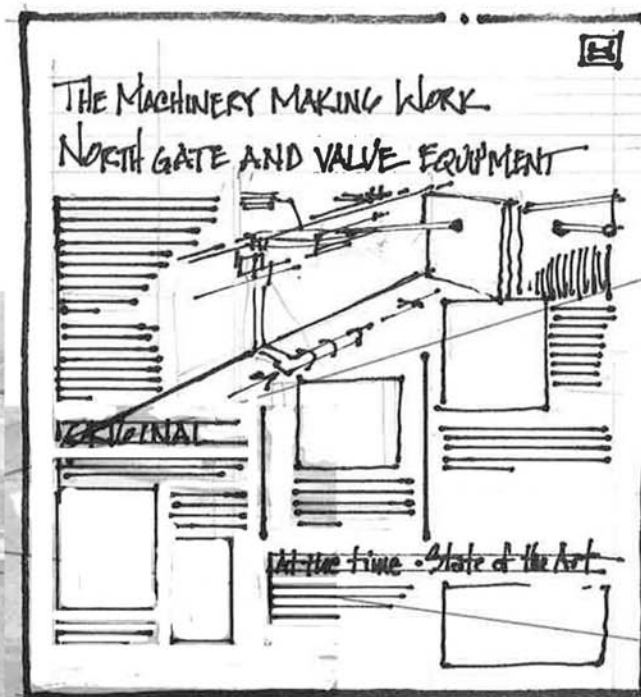 H
THE MACHINERY MAKING WORK
NORTH GATE AND VALUE EQUIPMENT
ORIGINAL
At the time • State of the Art